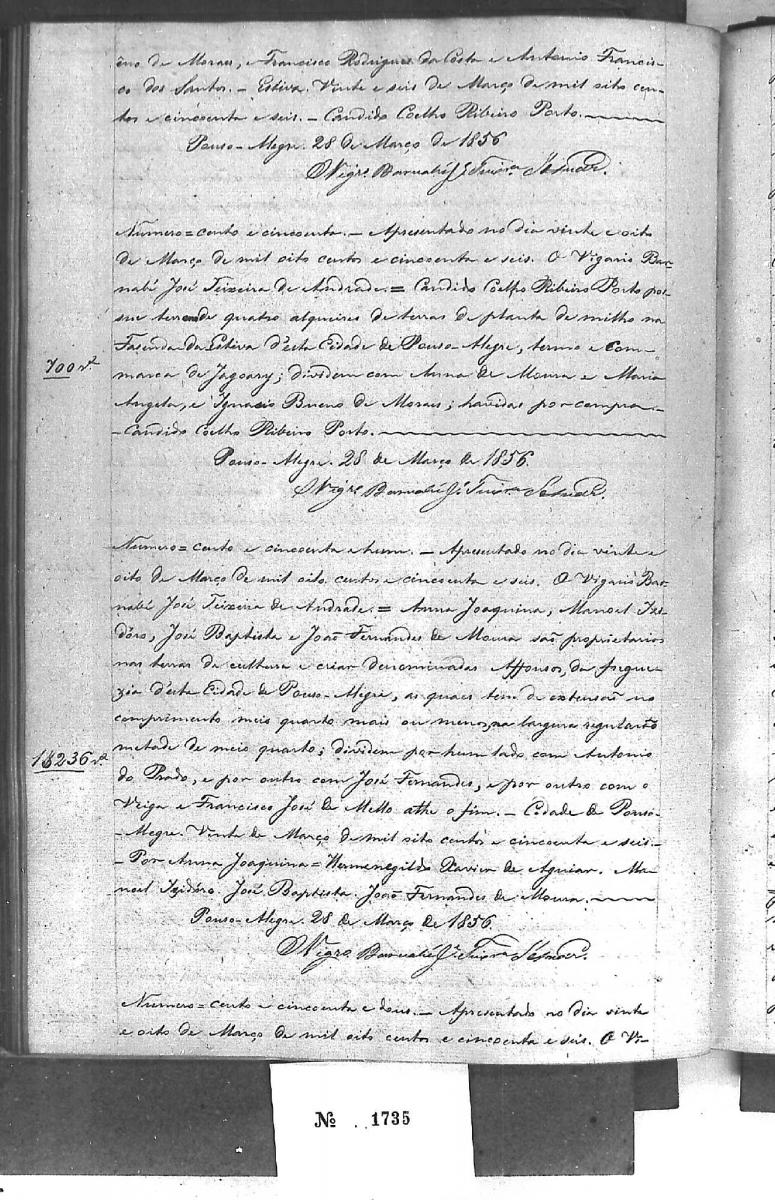 êno de Moraes, e Francisco Rodrigues da Costa e Antonio Francis-
co dos Santos. - Estiva. Vinte e seis de Março de mil oito cen-
tos e cincoenta e seis. - Candido Coelho Ribeiro Porto.
Pouso-Alegre. 28 de Março de 1856
O Vigrº Barnabé Jº Teixrª
Numero = cento e cincoenta. - Apresentado no dia vinte e oito
de Março de mil oito centos e cincoenta e seis. O Vigario Bar-
nabé José Teixeira de Andrade. = Candido Coelho Ribeiro Porto pos-
sue terrende quatro alqueires de terras de planta de milho na
Fazenda da Estiva d'esta Cidade de Pouso-Alegre, termo e Com-
marca de Jagoary; dividem com Anna de Moura e Maria
Angela, e Ignacio Bueno de Moraes; havidas por compra. -
- Candido Coelho Ribeiro Porto.
700 rs
Pouso-Alegre. 28 de Março de 1856.
O Vigrº Barnabé Jº Teixrª
Numero = cento e cincoenta e hum. - Apresentado no dia vinte e
oito de Março de mil oito centos e cincoenta e seis. O Vigario Bar-
nabé José Teixeira de Andrade. = Anna Joaquina, Manoel Izi-
dóro, José Baptista e João Fernandes de Moura são proprietarios
nas terras de cultura e criar denominadas Affonsos, da fregue-
zia d'esta Cidade de Pouso-Alegre, as quaes tem de extensão no
comprimento meio quarto mais ou menos, na largura regularão
metade de meio quarto; dividem por hum lado com Antonio
do Prado, e por outro com José Fernandes, e por outro com o
Veiga e Francisco José de Mello athe o fim. - Cidade de Pouso-
-Alegre. Vinte de Março de mil oito centos e cincoenta e seis. -
- Por Anna Joaquina = Hermenegildo Xavier de Aguiar. Ma-
noel Izidóro. José Baptista. João Fernandes de Moura.
18236 rs
Pouso-Alegre. 28 de Março de 1856.
O Vigrº Barnabé Jº Teixrª
Numero = cento e cincoenta e dous. - Apresentado no dia vinte
e oito de Março de mil oito centos e cincoenta e seis. O Vi-
Nº 1735